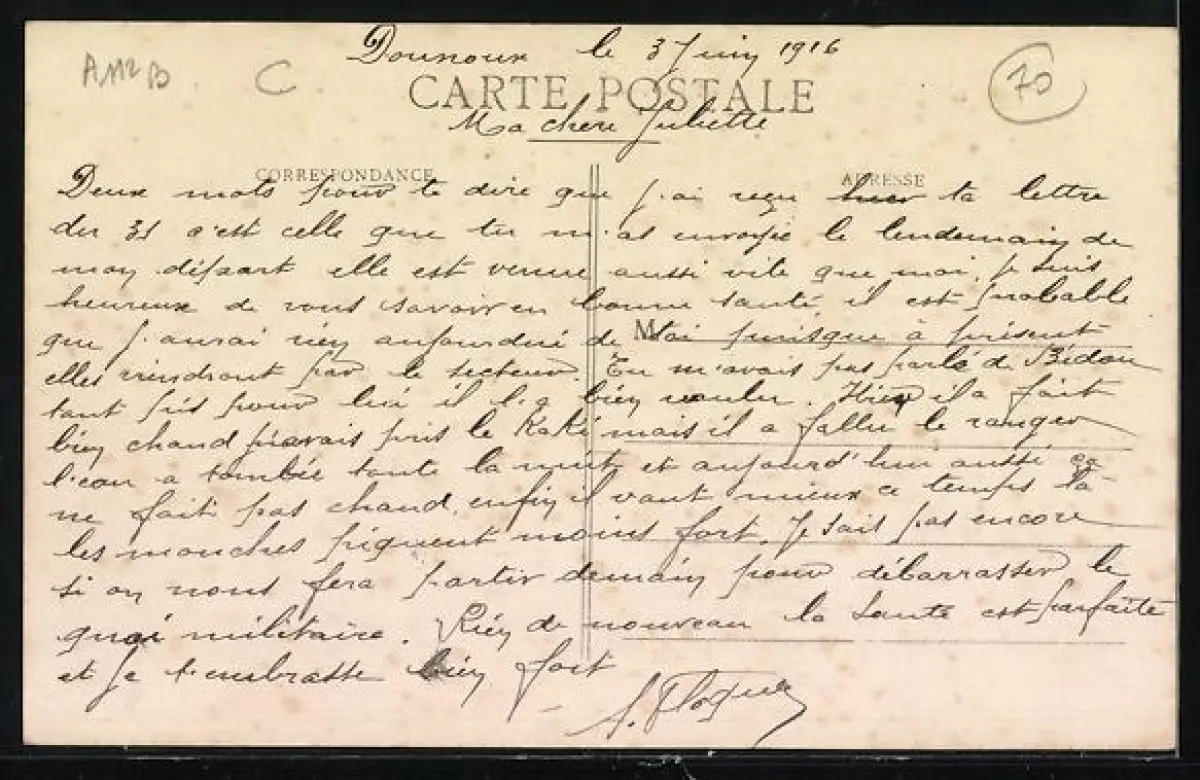 Dounoux le 3 Juin 1916
AM2B C 70
CARTE POSTALE
Ma chere Juliette
CORRESPONDANCE ADRESSE
Deux mots pour te dire que j'ai reçu hier ta lettre
du 31 c'est celle que tu m'as envoyée le lendemain de
mon départ elle est venue aussi vite que moi, je suis
heureux de vous savoir en bonne santé, il est probable
que j'aurai rien aujourdui de toi puisque à présent
M
elles viendront par le secteur. Tu m'avais pas parlé de Bidau
tant pis pour lui il l'a bien voulu. Hier il a fait
bien chaud j'avais pris le Kaki mais il a fallu le ranger
l'eau a tombée toute la nuit et aujourd'hui aussi ça
ne fait pas chaud, enfin il vaut mieux ce temps là
les mouches piquent moins fort. Je sais pas encore
si on nous fera partir demain pour débarrasser le
quai militaire. Rien de nouveau la santé est parfaite
et je t'embrasse bien fort